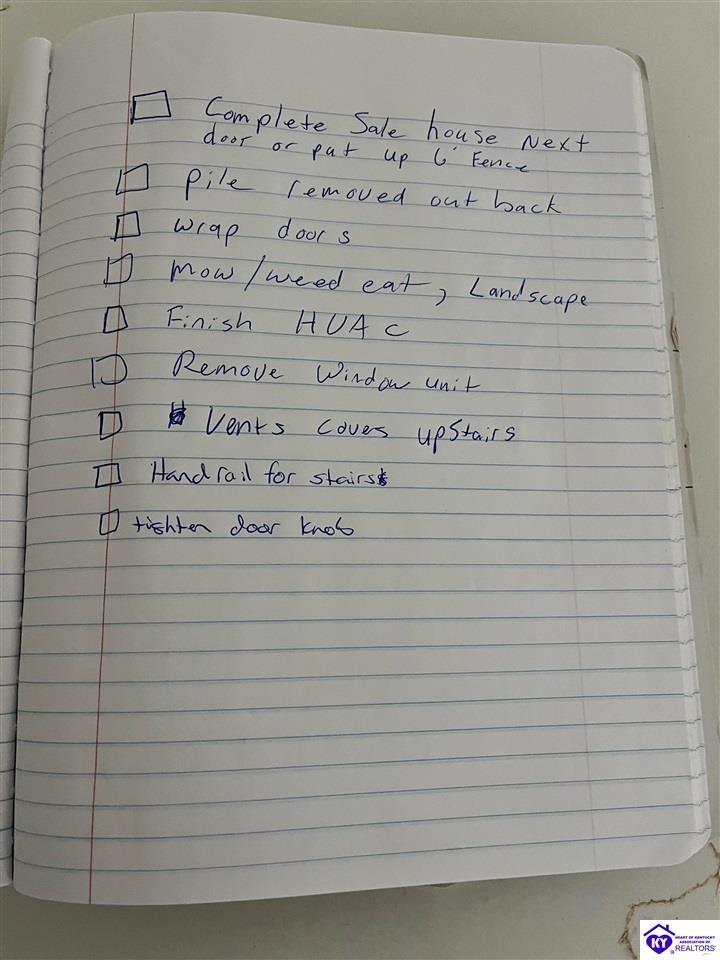 Complete Sale house Next
door or put up 6' Fence
Pile removed out back
wrap doors
mow/weed eat, Landscape
Finish HVAC
Remove Window unit
Vents coves upstairs
Handrail for stairs
tighten door knob
KY
HEART OF KENTUCKY
ASSOCIATION OF
REALTORS